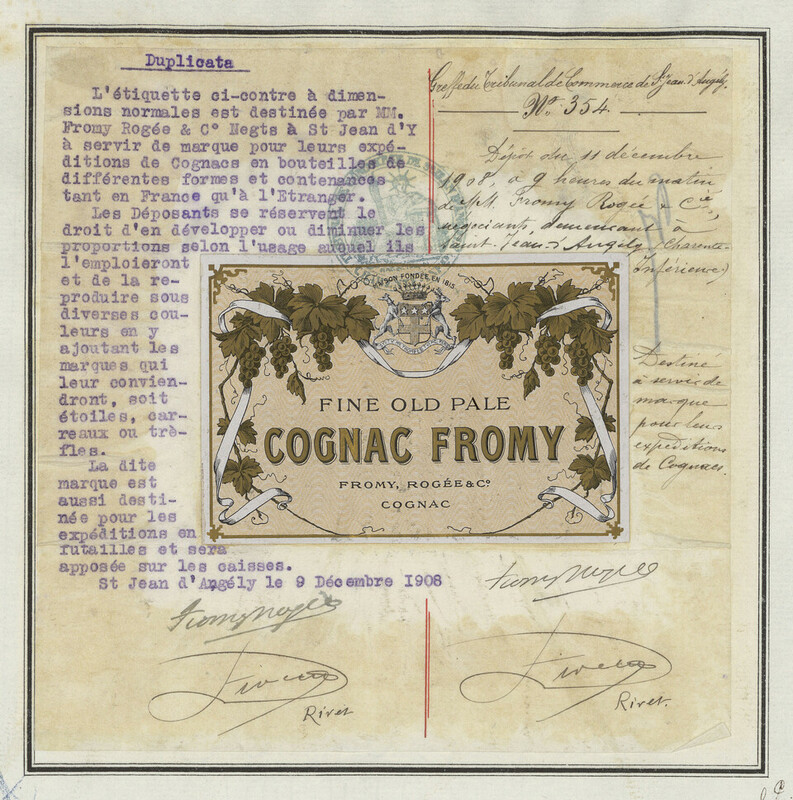 Duplicata
L'étiquette ci-contre à dimen-
sions normales est destinée par MM.
Fromy Rogée & Cº Negts à St Jean d'Y
à servir de marque pour leurs expé-
ditions de Cognacs en bouteilles de
différentes formes et contenances
tant en France qu'à l'Etranger.
Les Déposants se réservent le
droit d'en développer ou diminuer les
proportions selon l'usage auquel ils
l'emploieront
et de la re-
produire sous
diverses cou-
leurs en y
ajoutant les
marques qui
leur convien-
dront, soit
étoiles, car-
reaux ou trè-
fles.
La dite
marque est
aussi desti-
née pour les
expéditions en
futailles et sera
apposée sur les caisses.
St Jean d'Angély le 9 Décembre 1908
Fromy Rogée
Rivet
Greffe du Tribunal de Commerce de St Jean d'Angély.
Nº 354
Dépôt du 11 décembre
1908, à 9 heures du matin
de MM. Fromy Rogée & Cie,
négociants, demeurant à
Saint-Jean-d'Angély (Charente-
Inférieure)
MAISON FONDÉE EN 1815
FINE OLD PALE
COGNAC FROMY
FROMY, ROGÉE & Cº
COGNAC
Destiné
à servir de
marque
pour leurs
expéditions
de Cognacs.
Fromy Rogée
Rivet.